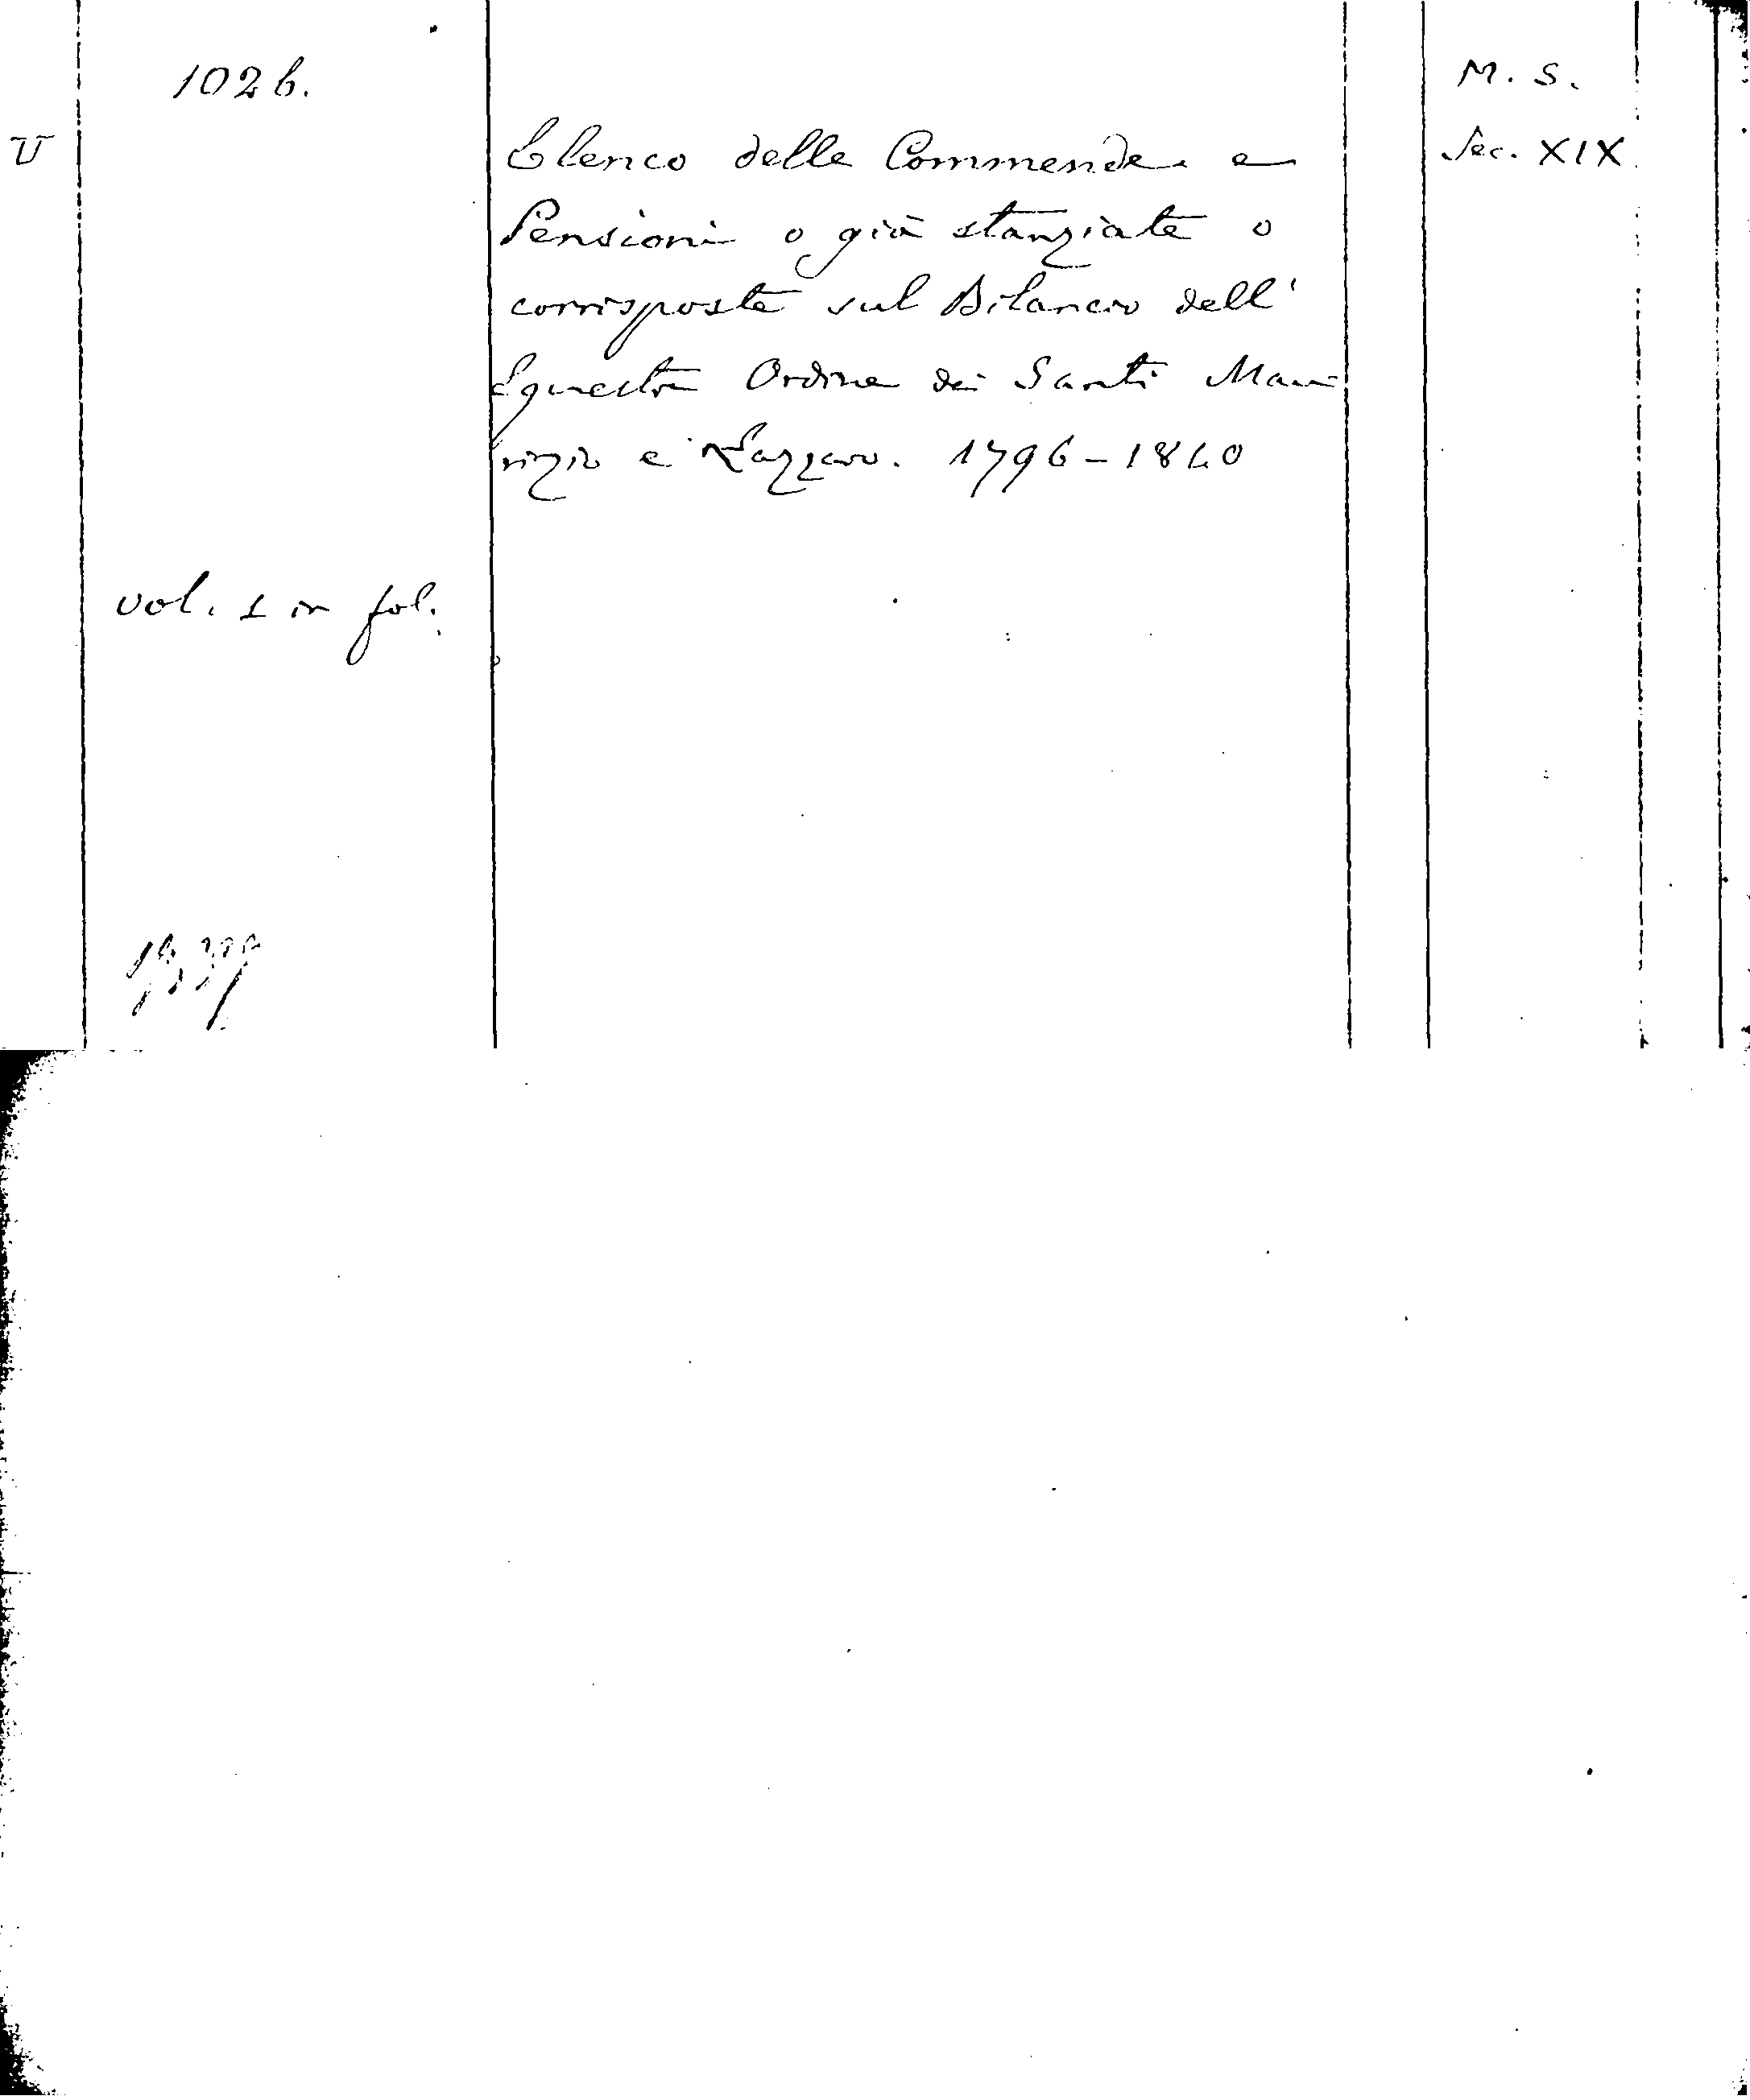 1026.
M. S.
V
Elenco delle Commende e
Sec. XIX
Pensioni o già stanziate o
corrisposte sul Bilancio dell'
Equestre Ordine dei Santi Mau
rizio e Lazzaro. 1796-1840
vol. 1 in fol.